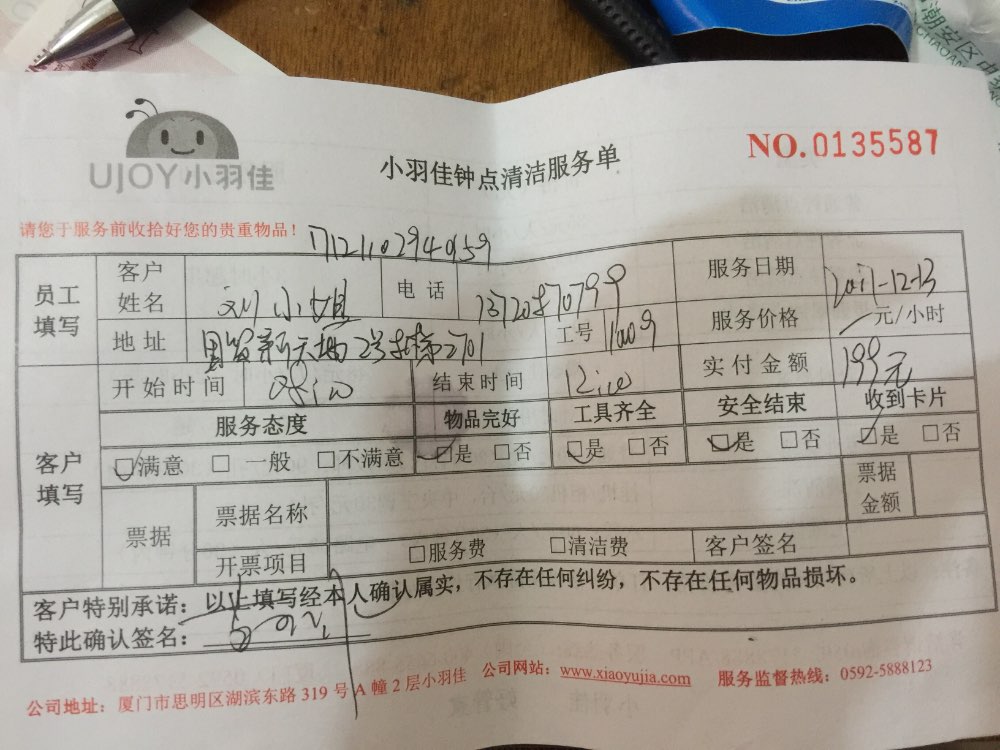 潮安区
CHAOAN
UJOY小羽佳
小羽佳钟点清洁服务单
NO.0135587
请您于服务前收拾好您的贵重物品！
员工填写
客户姓名 刘小姐 电话 服务日期 2017-12-13
地址 工号 服务价格 元/小时
开始时间 结束时间 12:00 实付金额 199元
客户填写
服务态度 物品完好 工具齐全 安全结束 收到卡片
☑满意 □一般 □不满意 ☑是 □否 ☑是 □否 ☑是 □否 ☑是 □否
票据 票据名称 票据金额
开票项目 □服务费 □清洁费 客户签名
客户特别承诺：以上填写经本人确认属实，不存在任何纠纷，不存在任何物品损坏。
特此确认签名：
公司地址：厦门市思明区湖滨东路 319 号 A 幢 2 层小羽佳 公司网站：www.xiaoyujia.com 服务监督热线：0592-5888123